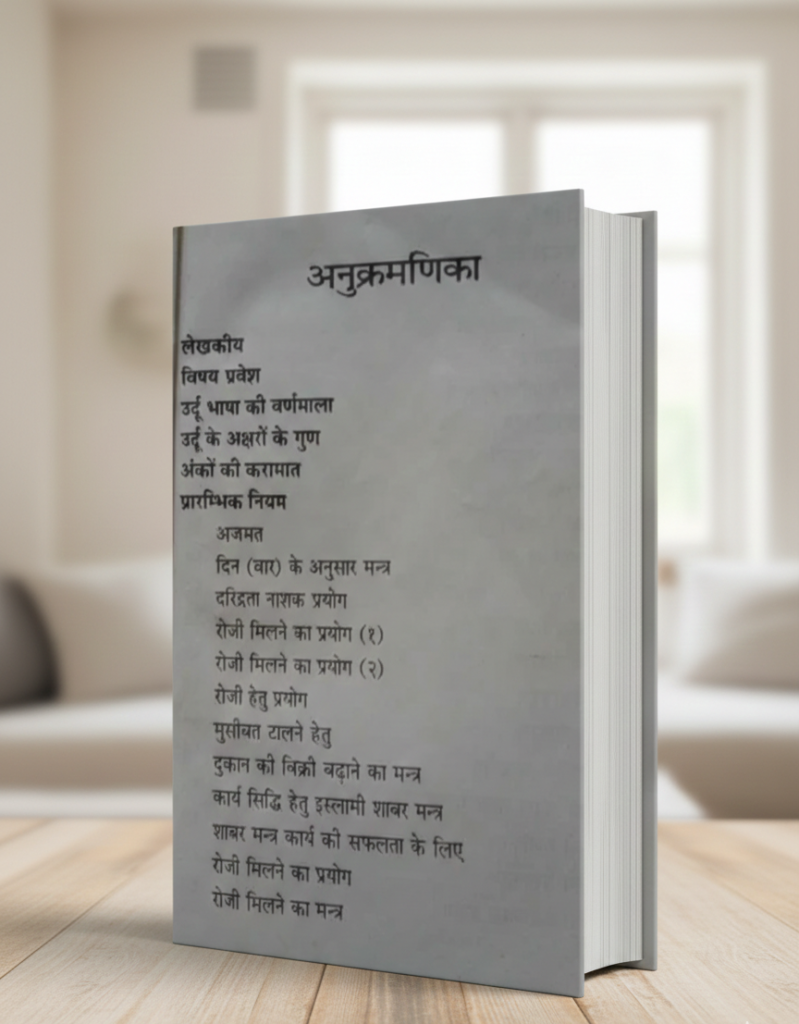 अनुक्रमणिका
लेखकीय
विषय प्रवेश
उर्दू भाषा की वर्णमाला
उर्दू के अक्षरों के गुण
अंकों की करामात
प्रारम्भिक नियम
अजमत
दिन (वार) के अनुसार मन्त्र
दरिद्रता नाशक प्रयोग
रोजी मिलने का प्रयोग (१)
रोजी मिलने का प्रयोग (२)
रोजी हेतु प्रयोग
मुसीबत टालने हेतु
दुकान की विक्री बढ़ाने का मन्त्र
कार्य सिद्धि हेतु इस्लामी शाबर मन्त्र
शाबर मन्त्र कार्य की सफलता के लिए
रोजी मिलने का प्रयोग
रोजी मिलने का मन्त्र